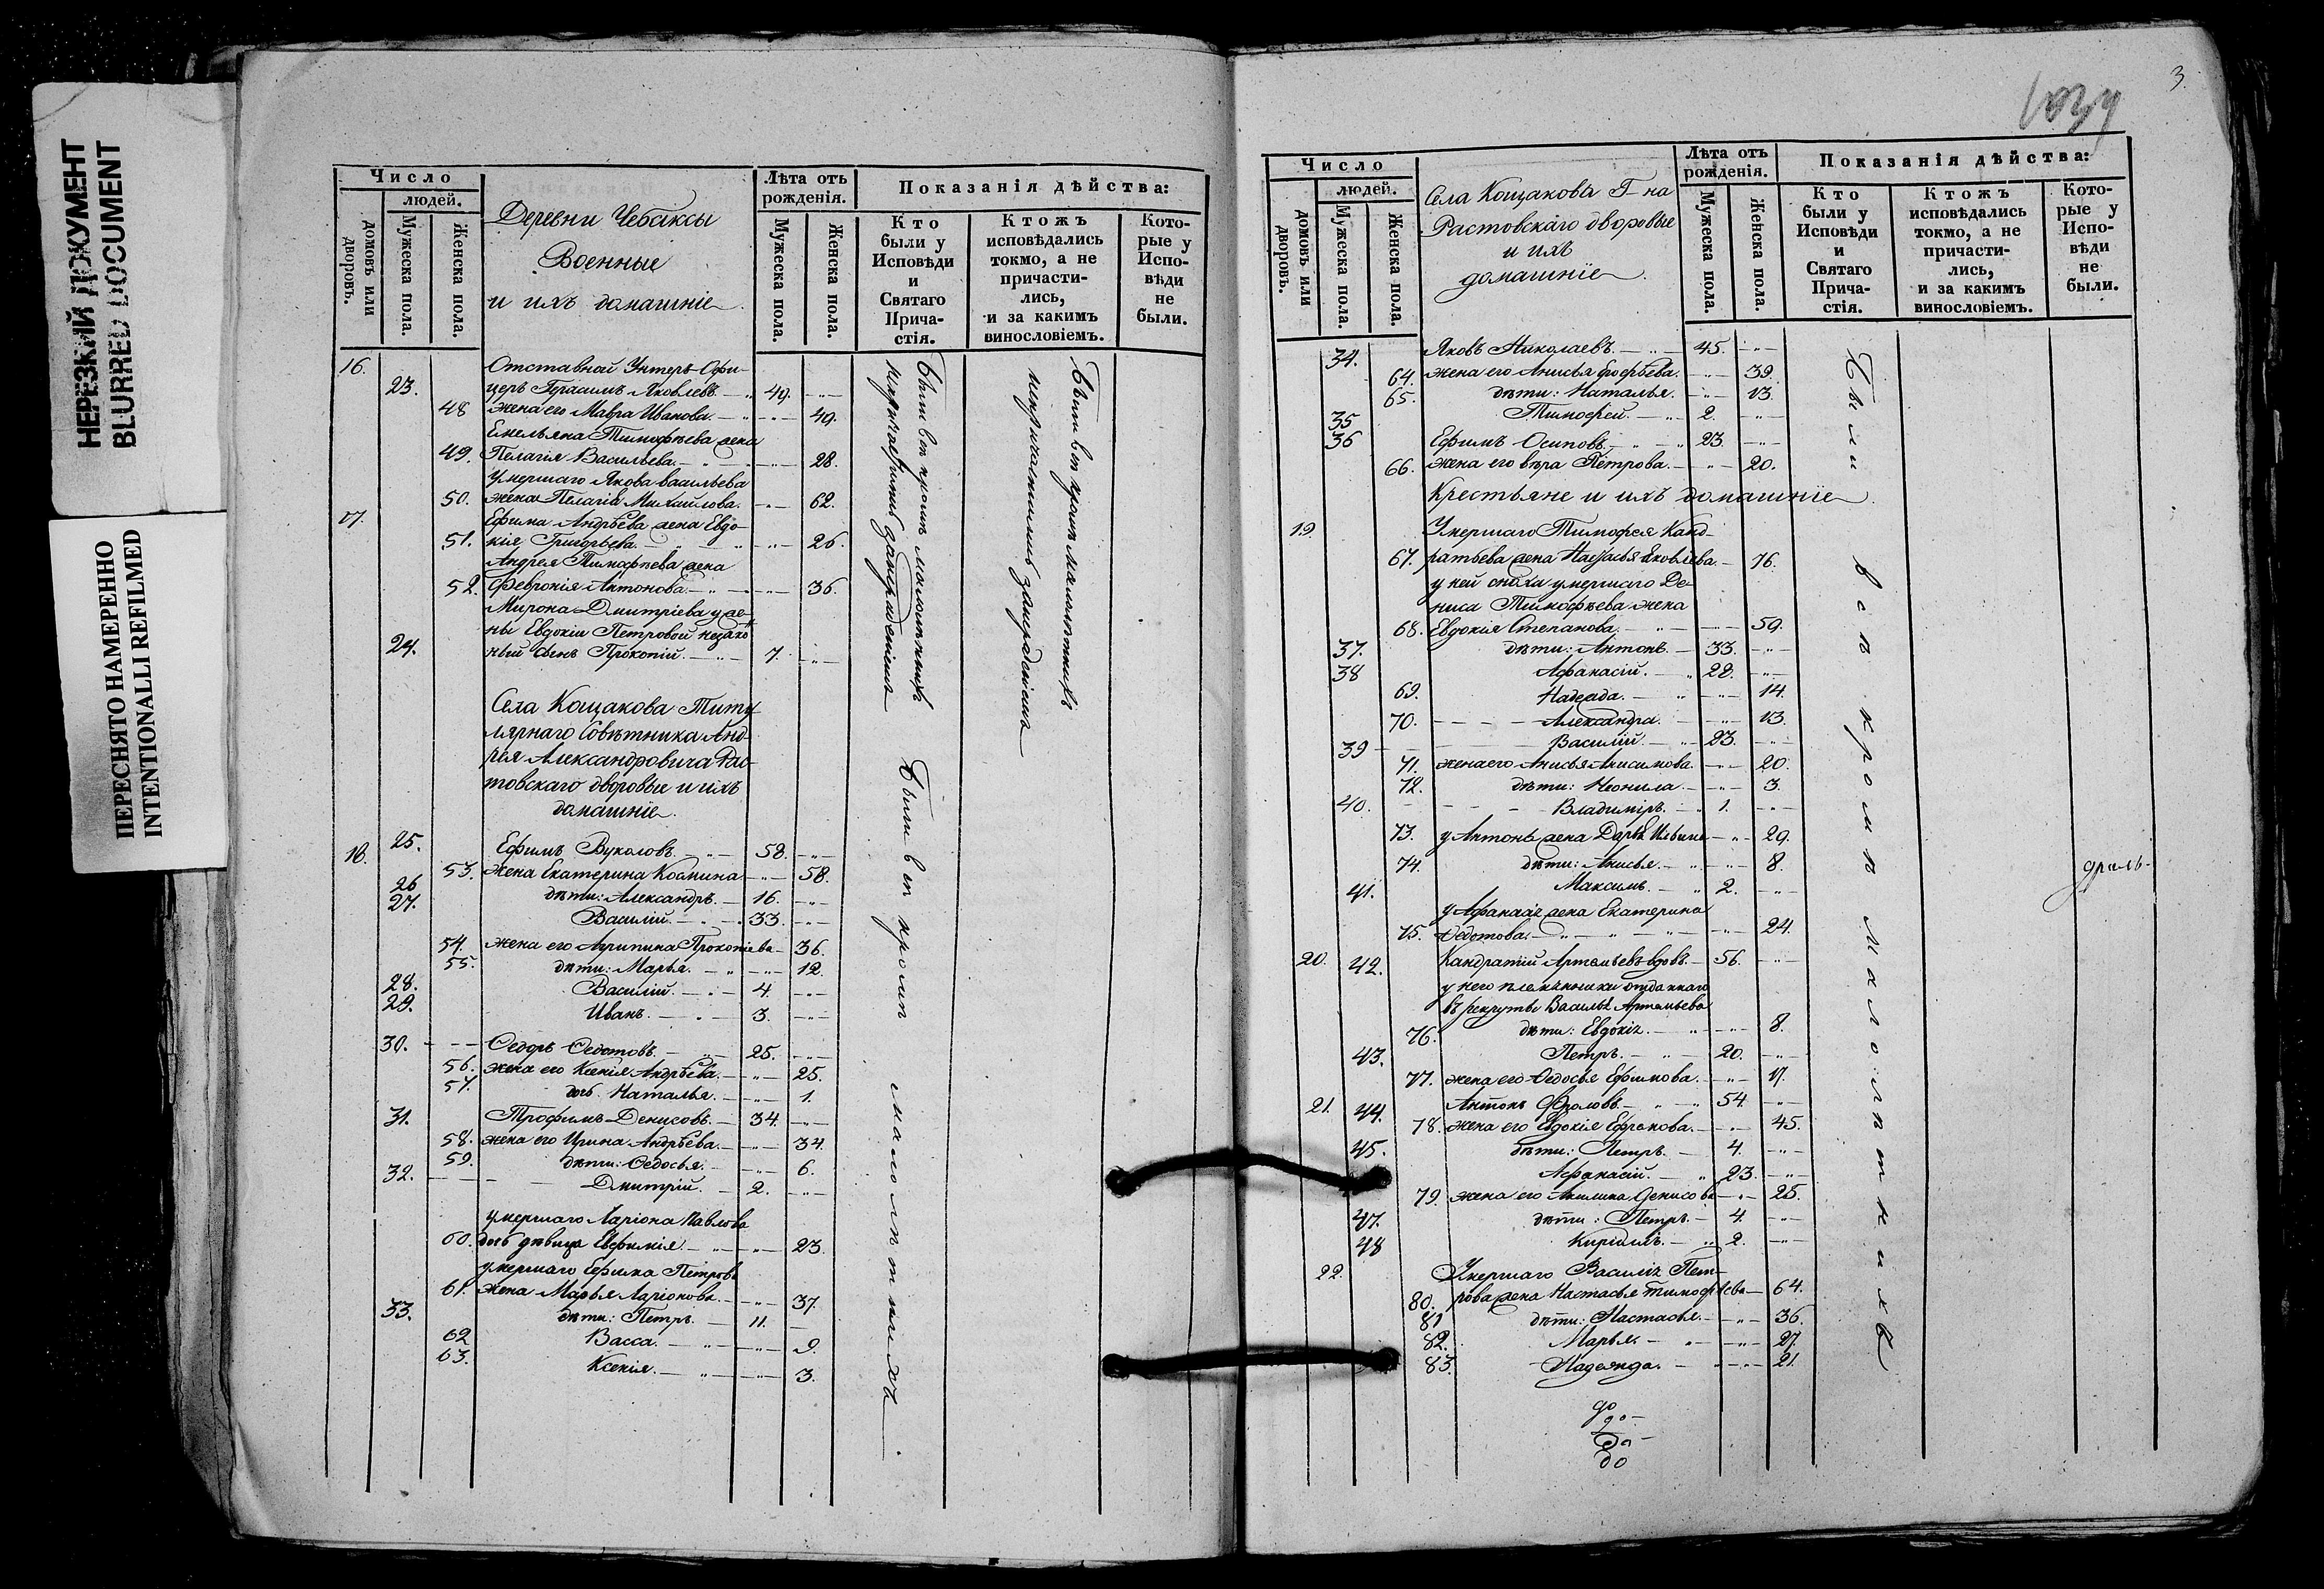 НЕРЕЗКИЙ ДОКУМЕНТ
BLURRED DOCUMENT
ПЕРЕСНЯТО НАМЕРЕННО
INTENTIONALLI REFILMED
Число
людей.
домовъ или дворовъ.
Мужеска пола.
Женска пола.
Деревни Чебаксы
Военные
и ихъ домашніе
Лѣта отъ рожденія.
Мужеска пола.
Женска пола.
Показанія дѣйства:
Кто были у Исповѣди и Святаго Прича-стія.
Ктожъ исповѣдались токмо, а не причасти-лись, и за какимъ винословіемъ.
Кото-рые у Испо-вѣди не были.
16. Отставной Унтеръ-Офи-
23. церъ Герасимъ Яковлевъ. 49.
48 жена его Мавра Иванова. 49.
Емельяна Тимофѣева жена
49. Пелагія Васильева. 28.
Умершаго Якова Васильева
50. жена Пелагія Михайлова. 62.
17. Ефима Андрѣева жена Евдо-
51. кія Григорьева. 26.
Андрея Тимофѣева жена
52. Февронія Антонова. 36.
Мирона Дмитріева у же-
ны Евдокіи Петровой незако
24. ный сынъ Прокопій. 7.
Были вси кромѣ малолѣтнихъ
Села Кощакова Титу
лярнаго Совѣтника Анд-
рея Александровича Рас-
товскаго дворовые и ихъ
домашніе.
18. 25. Ефимъ Вуколовъ 58.
53. Жена Екатерина Козмина 58.
26 дѣти: Александръ. 16.
27. Василій. 33.
54. жена его Агрипина Прокопіева 36.
55. дѣти: Марья. 12.
28. Василій. 4.
29. Иванъ. 3.
30. Ѳедоръ Ѳедотовъ. 25.
56. жена его Ксенія Андрѣева. 25.
57. дочь Наталья. 1.
31. Трофимъ Денисовъ. 34.
58. жена его Ирина Андрѣева. 34.
59. дѣти: Ѳедосья. 6.
32. Дмитрій. 2.
умершаго Ларіона Павлова
60. дочь дѣвица Евфимія. 23.
умершаго Ефима Петрова
61. жена Марья Ларіонова. 37.
33. дѣти: Петръ. 11.
62 Васса. 9.
63. Ксенія. 3.
Были вси кромѣ малолѣтнихъ.
3.
Число
людей.
домовъ или дворовъ.
Мужеска пола.
Женска пола.
Села Кощакова Г-на
Растовскаго дворовые
и ихъ
домашніе.
Лѣта отъ рожденія.
Мужеска пола.
Женска пола.
Показанія дѣйства:
Кто были у Исповѣди и Святаго Прича-стія.
Ктожъ исповѣдались токмо, а не причасти-лись, и за какимъ винословіемъ.
Кото-рые у Испо-вѣди не были.
34. Яковъ Николаевъ. 45.
64. жена его Анисья 39.
65. дѣти: Наталья. 13.
35 Тимофей. 2.
36 Ефимъ Осиповъ. 23.
66. жена его Вѣра Петрова. 20.
Крестьяне и ихъ домашніе
19. Умершаго Тимофея Конд-
67. ратьева жена Настасья Яковлева. 76.
у ней сноха умершаго Де-
ниса Тимофѣева жена
68. Евдокія Степанова. 59.
37. дѣти: Антонъ. 33.
38 Афанасій. 28.
69. Надежда. 14.
70. Александра. 13.
39 Василій. 23.
71. жена его Анисья Анисимова. 20.
72. дѣти: Неонила. 3.
40. Владиміръ. 1.
73. у Антона жена Дарья Ильина 29.
74. дѣти: Анисья. 8.
41. Максимъ. 2.
у Афанасія жена Екатерина
75. Ѳедотова. 24.
20. 42. Кандратій Артемьевъ вдовъ. 56.
у него племянники отданнаго
въ рекруты Василья Артемьева
76. дѣти: Евдокія. 8.
43. Петръ. 20.
77. жена его Ѳедосья Ефимова. 17.
21. 44. Антонъ Фроловъ. 54.
78. жена его Евдокія 45.
45. дѣти: Петръ. 4.
Афанасій. 23.
79. жена его Акилина Денисова 25.
47. дѣти: Петръ. 4.
48 Кириллъ. 2.
22. Умершаго Василія Пет-
80. рова жена Настасья Тимофѣева 64.
81 дѣти: Настасья. 36.
82. Марья. 27.
83. Надежда. 21.
Были вси кромѣ малолѣтнихъ